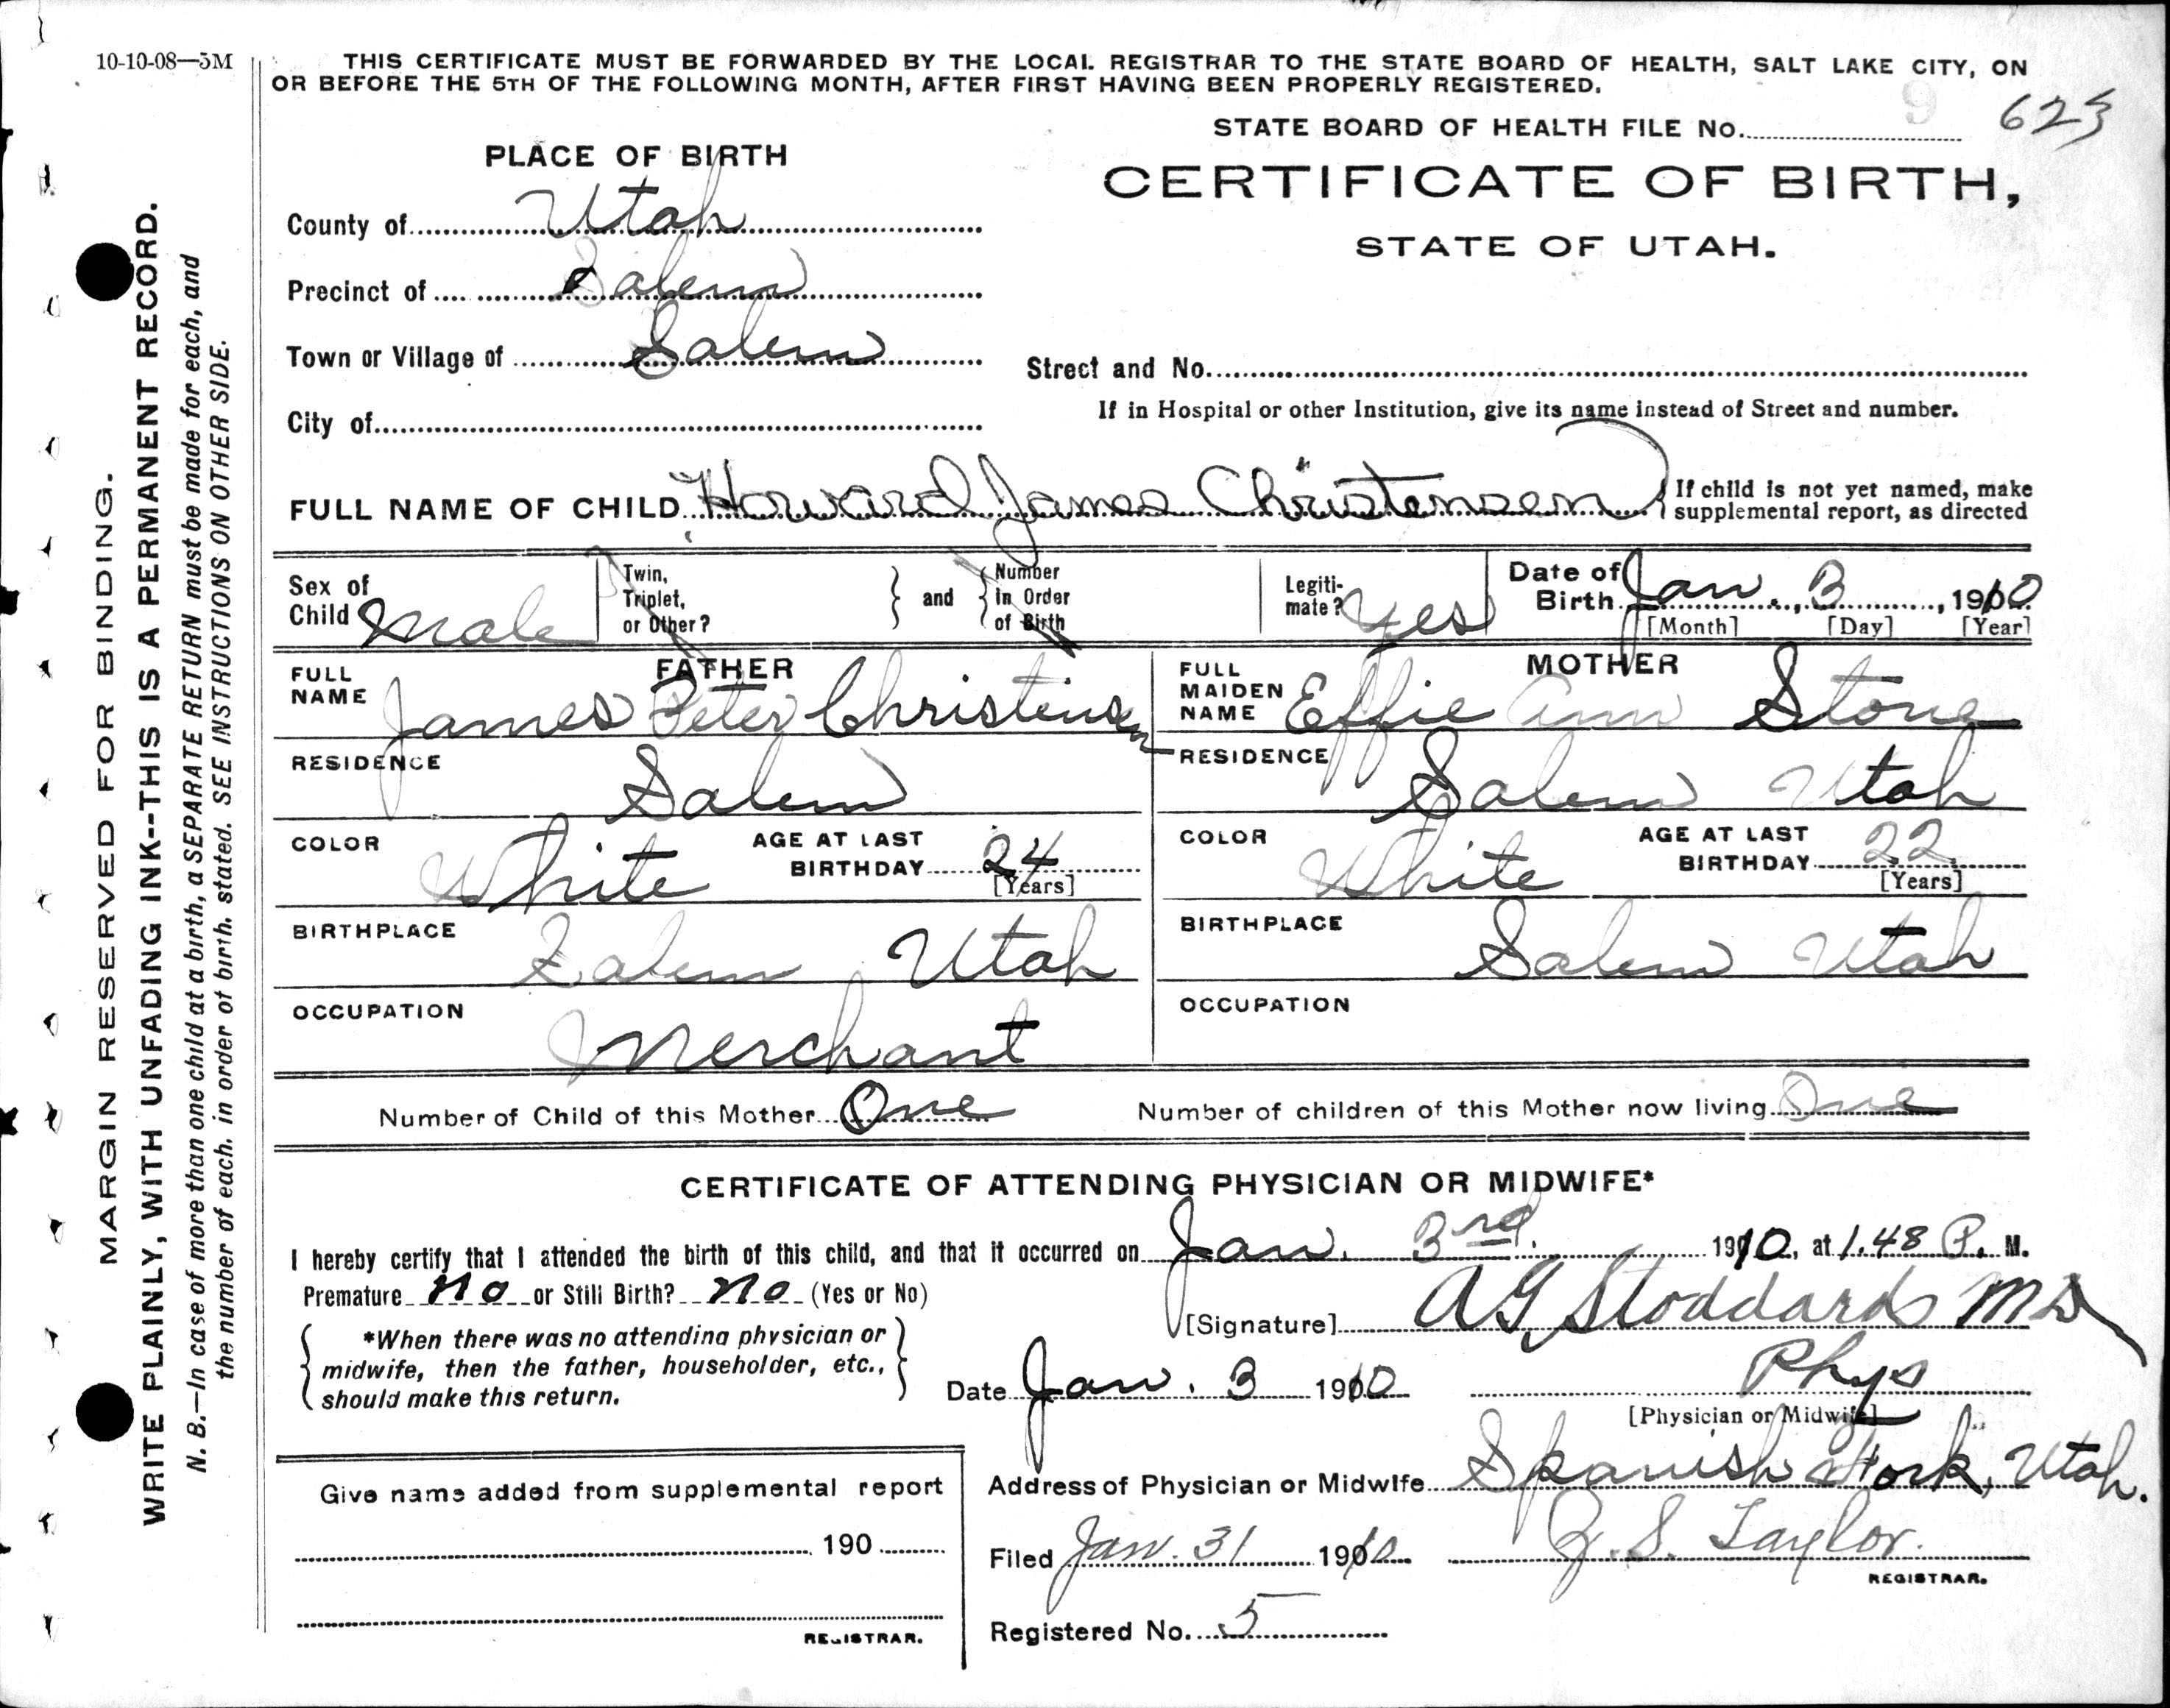 10-10-08—5M
THIS CERTIFICATE MUST BE FORWARDED BY THE LOCAL REGISTRAR TO THE STATE BOARD OF HEALTH, SALT LAKE CITY, ON
OR BEFORE THE 5TH OF THE FOLLOWING MONTH, AFTER FIRST HAVING BEEN PROPERLY REGISTERED.
STATE BOARD OF HEALTH FILE No. 9 623
PLACE OF BIRTH
CERTIFICATE OF BIRTH,
STATE OF UTAH.
County of Utah
Precinct of Salem
Town or Village of Salem
Street and No.
City of
If in Hospital or other Institution, give its name instead of Street and number.
FULL NAME OF CHILD Howard James Christensen
If child is not yet named, make
supplemental report, as directed
Sex of Child Male
Twin, Triplet, or Other? and Number in Order of Birth
Legitimate? Yes
Date of Birth Jan. 3, 1910
[Month] [Day] [Year]
FATHER
FULL NAME James Peter Christensen
RESIDENCE Salem
COLOR White AGE AT LAST BIRTHDAY 24
[Years]
BIRTHPLACE Salem Utah
OCCUPATION Merchant
MOTHER
FULL MAIDEN NAME Effie Ann Stone
RESIDENCE Salem Utah
COLOR White AGE AT LAST BIRTHDAY 22
[Years]
BIRTHPLACE Salem Utah
OCCUPATION
Number of Child of this Mother One Number of children of this Mother now living One
CERTIFICATE OF ATTENDING PHYSICIAN OR MIDWIFE*
I hereby certify that I attended the birth of this child, and that it occurred on Jan. 3rd. 1910, at 1.48 P. M.
Premature No or Still Birth? No (Yes or No)
[Signature] A G Stoddard MD
*When there was no attending physician or
midwife, then the father, householder, etc.,
should make this return.
Date Jan. 3 1910 Phys
[Physician or Midwife]
Address of Physician or Midwife Spanish Fork, Utah.
Filed Jan. 31 1910 Z. S. Taylor.
REGISTRAR.
Registered No. 5
Give name added from supplemental report
190
REGISTRAR.
MARGIN RESERVED FOR BINDING.
WRITE PLAINLY, WITH UNFADING INK--THIS IS A PERMANENT RECORD.
N. B.—In case of more than one child at a birth, a SEPARATE RETURN must be made for each, and
the number of each. in order of birth. stated. SEE INSTRUCTIONS ON OTHER SIDE.